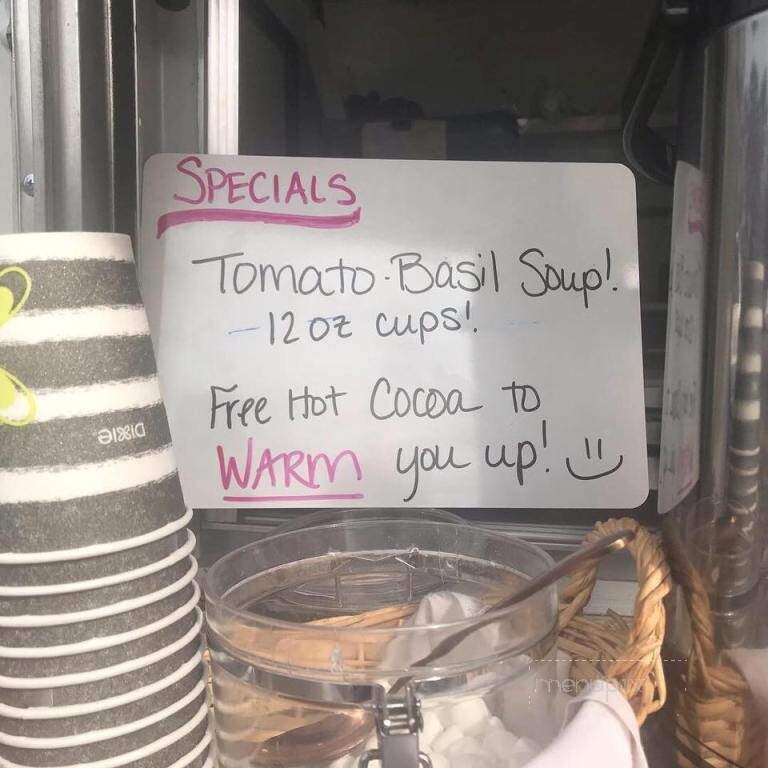 SPECIALS
Tomato-Basil Soup!
- 12 oz cups!
Free Hot Cocoa to
WARM you up! =)
DIXIE